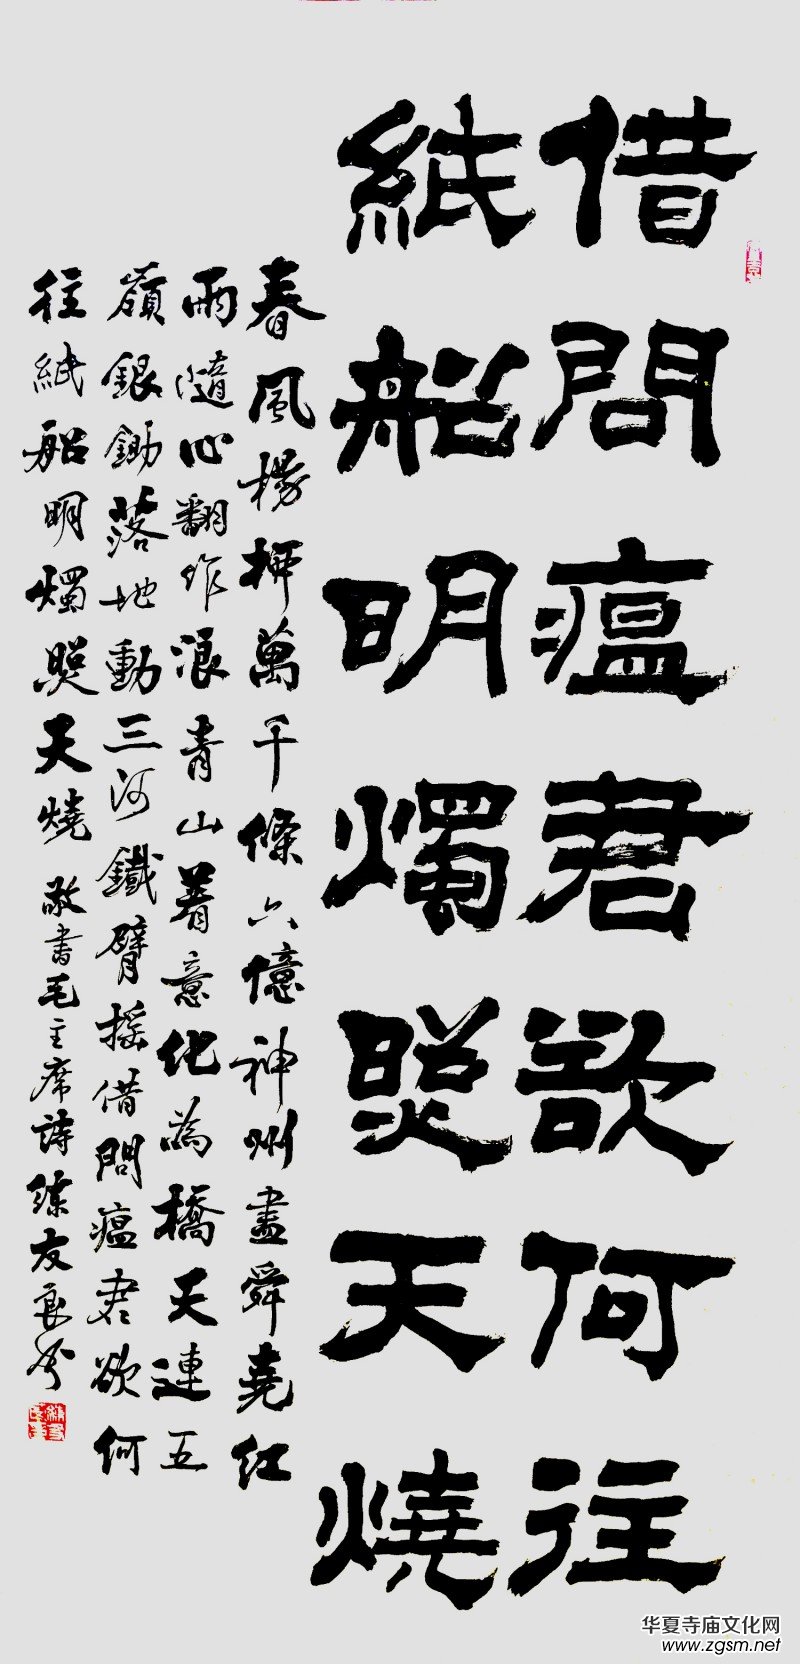 借問瘟君欲何往
紙船明燭照天燒
春風楊柳萬千條六億神州盡舜堯紅
雨隨心翻作浪青山着意化為橋天連五
嶺銀鋤落地動三河鐵臂搖借問瘟君欲何
往紙船明燭照天燒 敬書毛主席詩 友良
华夏寺庙文化网
www.zgsm.net